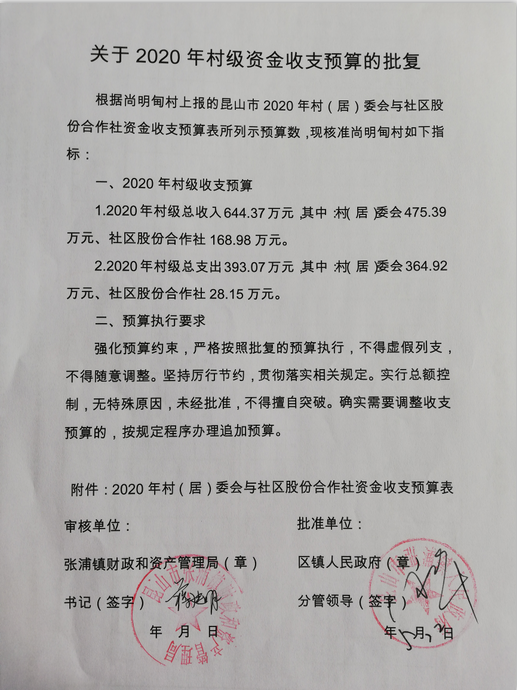 关于 2020 年村级资金收支预算的批复
根据尚明甸村上报的昆山市 2020 年村（居）委会与社区股
份合作社资金收支预算表所列示预算数，现核准尚明甸村如下指
标：
一、2020 年村级收支预算
1.2020 年村级总收入 644.37 万元，其中：村（居）委会 475.39
万元、社区股份合作社 168.98 万元。
2.2020 年村级总支出 393.07 万元，其中：村（居）委会 364.92
万元、社区股份合作社 28.15 万元。
二、预算执行要求
强化预算约束，严格按照批复的预算执行，不得虚假列支，
不得随意调整。坚持厉行节约，贯彻落实相关规定。实行总额控
制，无特殊原因，未经批准，不得擅自突破。确实需要调整收支
预算的，按规定程序办理追加预算。
附件：2020 年村（居）委会与社区股份合作社资金收支预算表
审核单位：
批准单位：
张浦镇财政和资产管理局（章）
区镇人民政府（章）
书记（签字）
分管领导（签字）
年 月 日
年 月 日